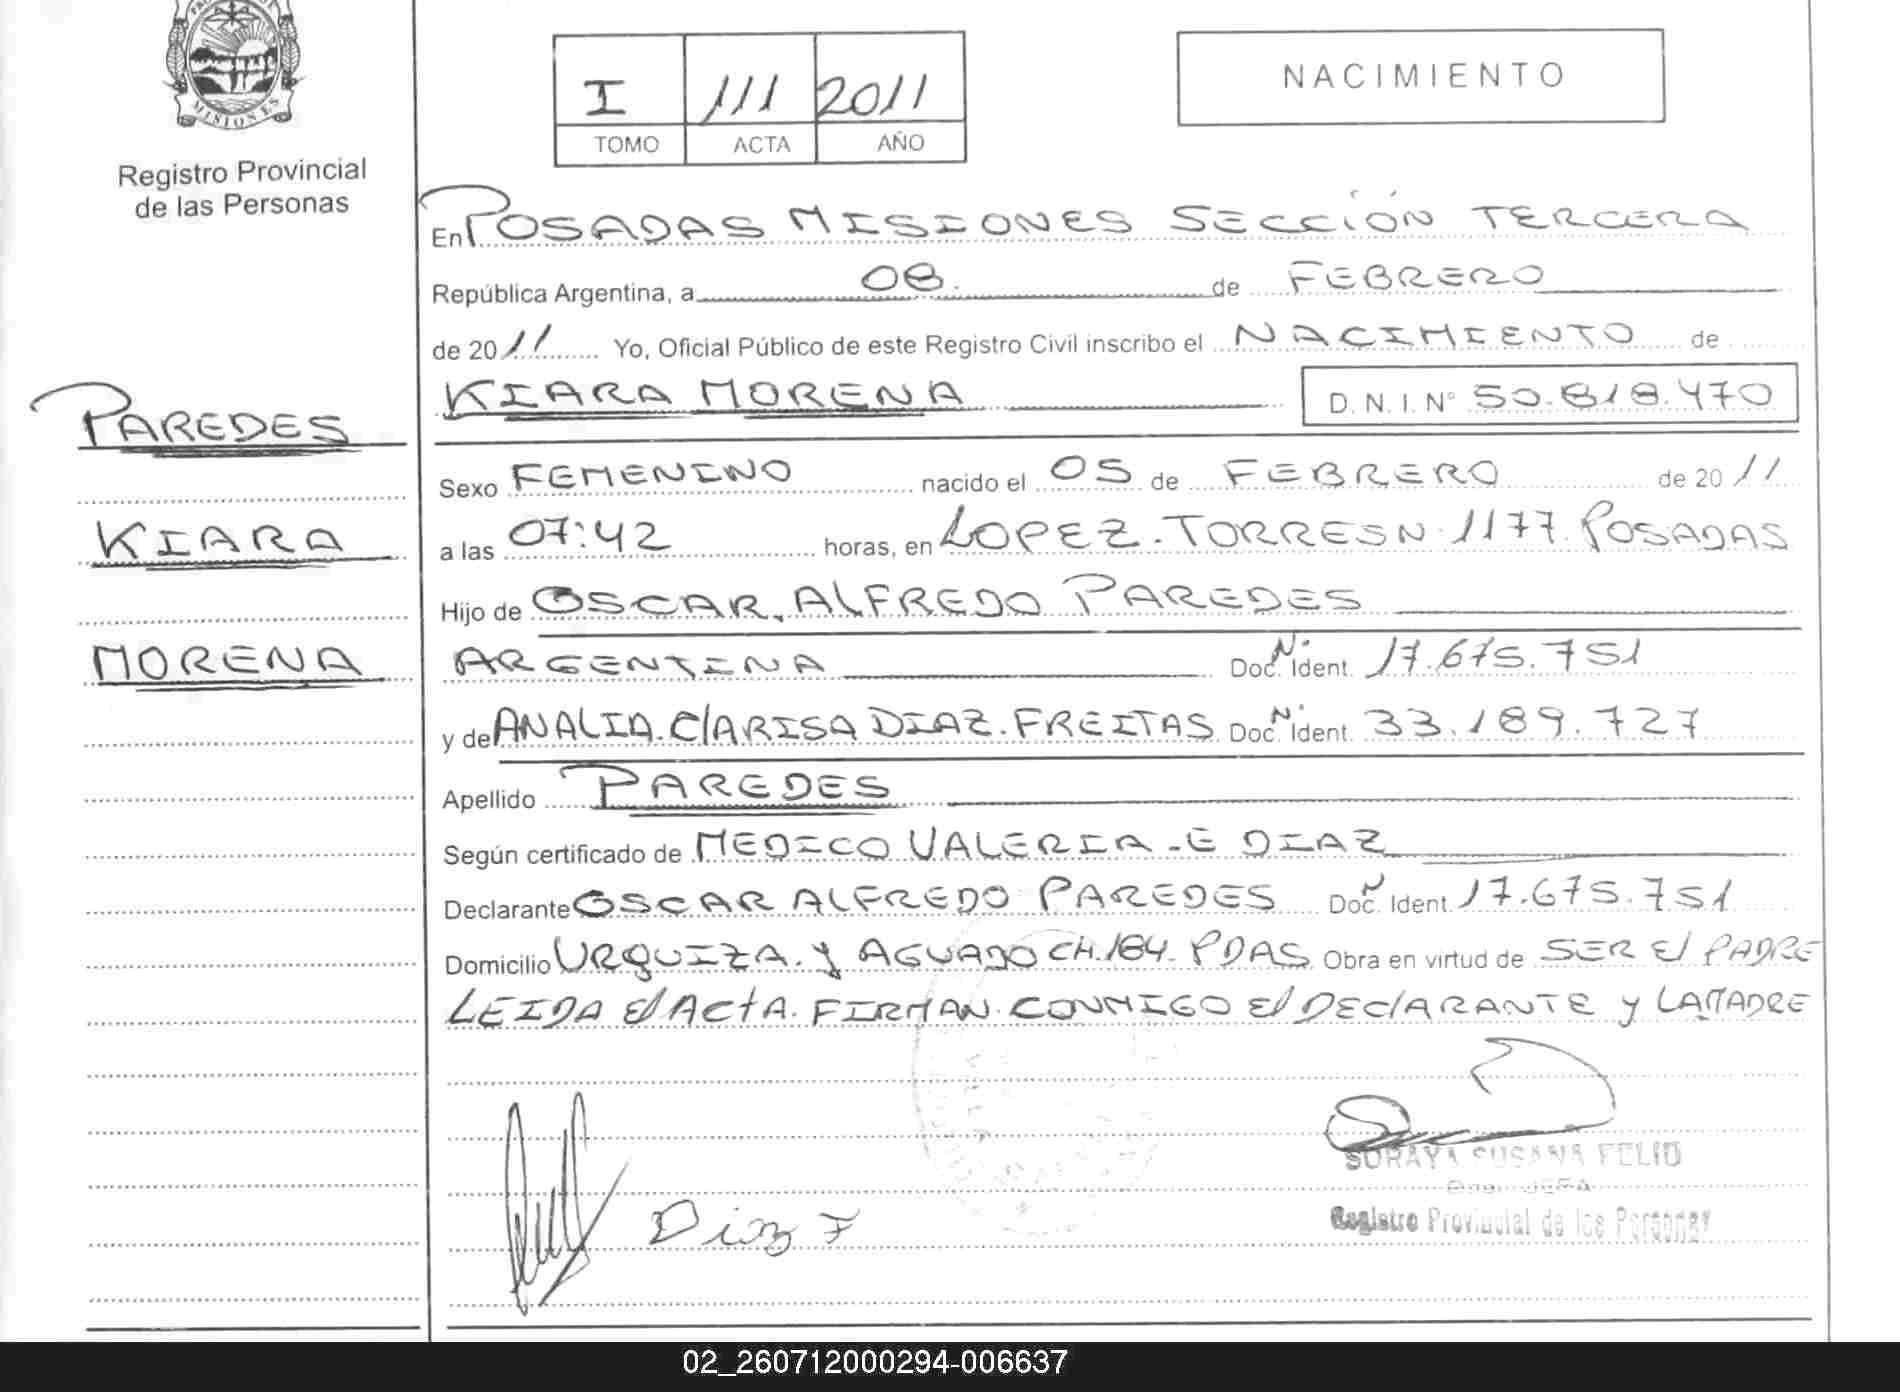 MISIONES
Registro Provincial
de las Personas
I 111 2011
TOMO ACTA AÑO
NACIMIENTO
En POSADAS MISIONES SECCIÓN TERCERA
República Argentina, a 08 de FEBRERO
de 2011 Yo, Oficial Público de este Registro Civil inscribo el NACIMIENTO de
KIARA MORENA D. N. I. N° 50.818.470
PAREDES
KIARA
MORENA
Sexo FEMENINO nacido el 05 de FEBRERO de 2011
a las 07:42 horas, en LOPEZ. TORRES N. 1177. POSADAS
Hijo de OSCAR. ALFREDO PAREDES
ARGENTINA Doc. N. Ident. 17.675.751
y de ANALIA. ClARISA DIAZ. FREITAS Doc. N. Ident. 33.189.727
Apellido PAREDES
Según certificado de MEDICO VALERIA - E DIAZ
Declarante OSCAR ALFREDO PAREDES Doc. N Ident. 17.675.751
Domicilio URQUIZA. y AGUADO CH. 184. PDAS Obra en virtud de SER El PADRE
LEIDA El ACtA. FIRMAN. CONMIGO El DEClARANTE y LA MADRE
Diaz F
SORAYA SUSANA FELIO
JEFA
Registro Provincial de las Personas
02_260712000294-006637